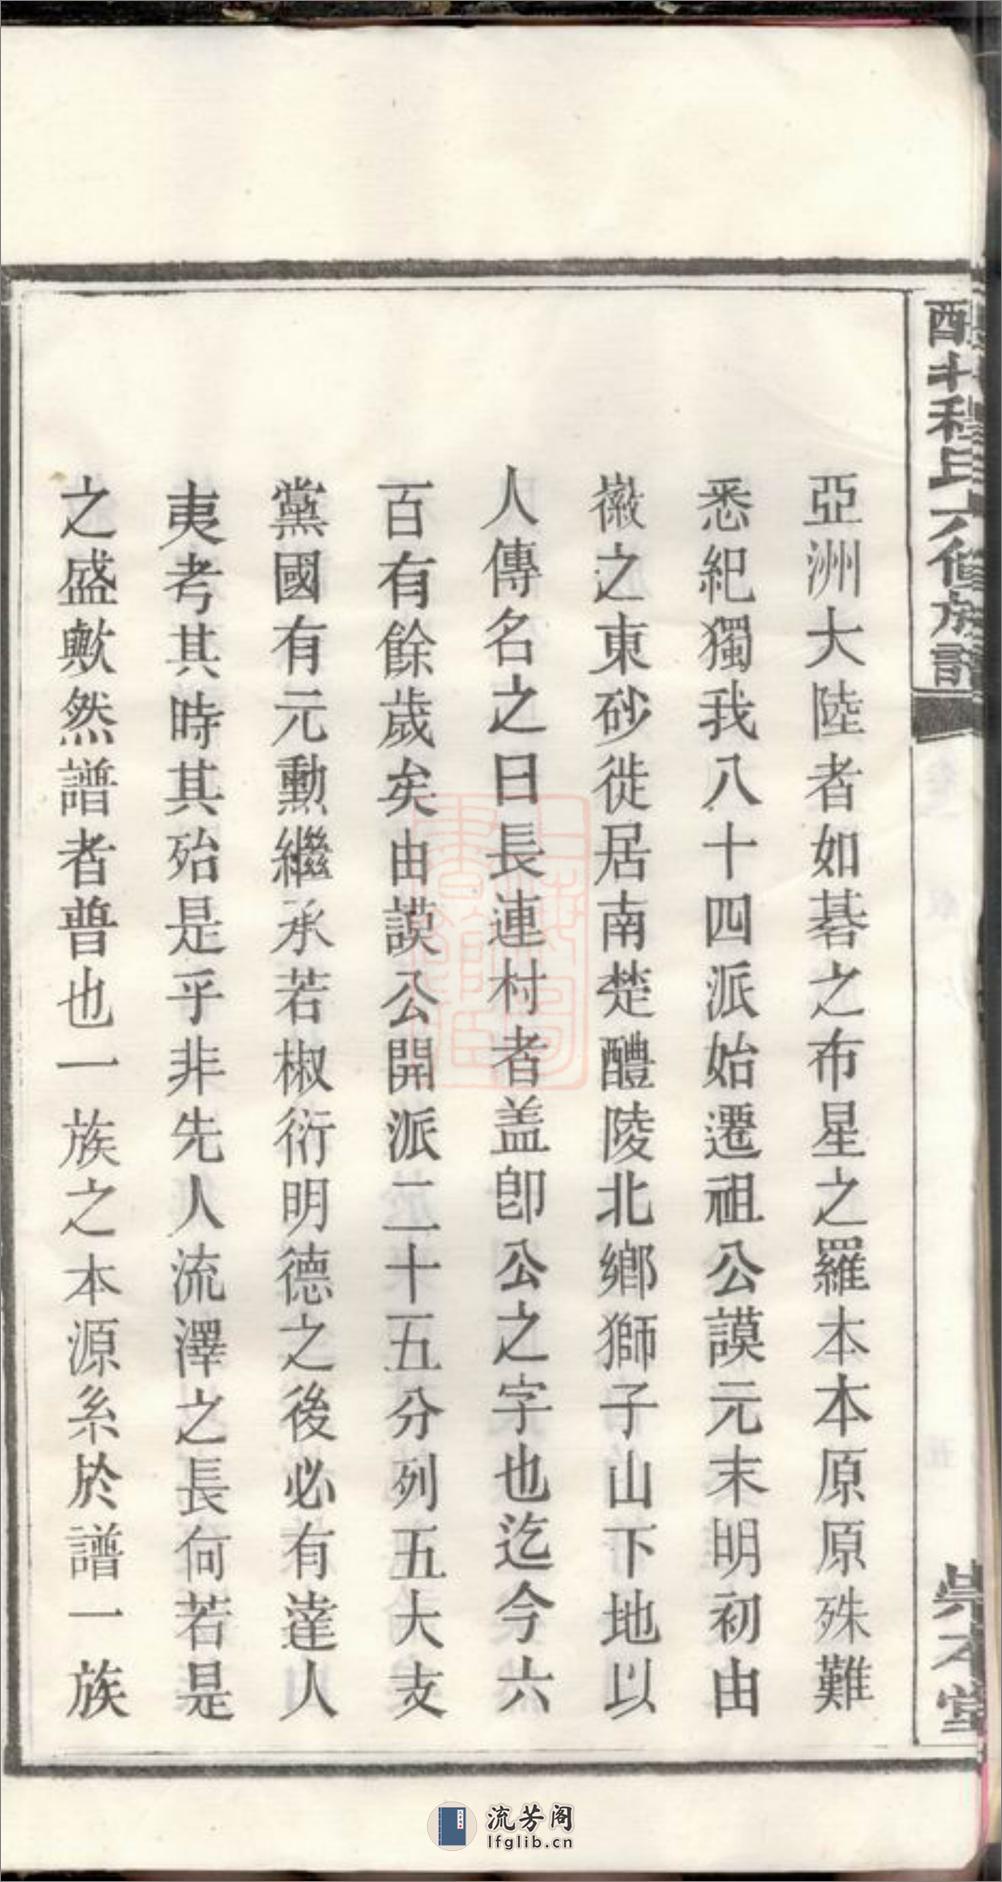 亞洲大陸者如碁之布星之羅本本原原殊難
悉紀獨我八十四派始遷祖公謨元末明初由
徽之東砂徙居南楚醴陵北鄉獅子山下地以
人傳名之曰長連村者盖卽公之字也迄今六
百有餘歲矣由謨公開派二十五分列五大支
黨國有元勳繼承若椒衍明德之後必有達人
夷考其時其殆是乎非先人流澤之長何若是
之盛歟然譜者普也一族之本源系於譜一族
程氏六修族譜
本堂
流芳阁
lfglib.cn